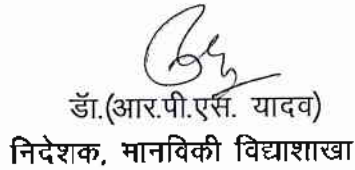 डॉ.(आर.पी.एस. यादव)
निदेशक, मानविकी विद्याशाखा